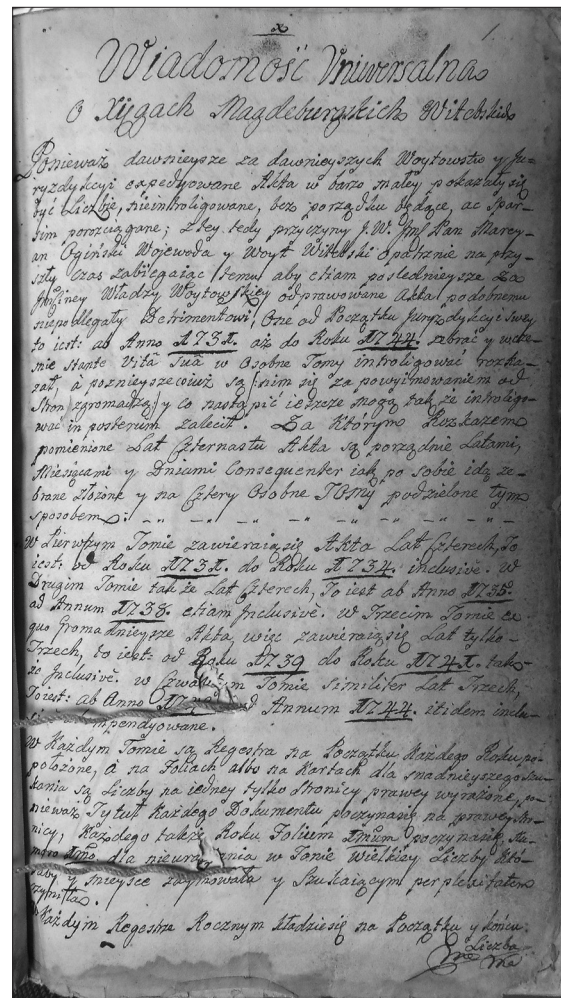 1.
Wiadomość Vniwersalna
O Xięgach Magdeburgskich Witebskich
Ponieważ dawnieysze za dawnieyszych Woytowstw y Ju-
ryzdykcyi expedyowane Akta w barzo małey pokazały się
być Liczbie, nieintroligowane, bez porządku będące, ac spar-
sim porozciągane; z tey tedy przyczyny J.W. Jmſ Pan Marcy-
an Ogiński Woiewoda y Woyt Witebski opatrznie na przy-
szły czas zabiegaiąc temu aby etiam poslednieysze za
Władzy Woytowskiey odprawowane Akta podobnemu
niepodlegały Detrimentowi, One od Początku Juryzdykcyi swey
to iest: ab Anno 1731. aż do Roku 1744. zebrać y wcze-
snie stante Vitâ suâ w Osobne Tomy introligować rozka-
zał, a poznieysze są nim się za powyimowaniem od
Stron zgromadzą y co nastąpić ieszcze mogą także introligo-
wać in posterum zalecił. Za Którym Rozkazem
pomienione Lat Czternastu Akta są porządnie Latami,
Miesiącami y Dniami Consequenter iak po sobie idą ze-
brane złożone y na Cztery Osobne Tomy podzielone tym
sposobem:
W Pierwszym Tomie zawieraią się Akta Lat Czterech, To
iest: od Roku 1731. do Roku 1734. inclusivè. W
Drugim Tomie także Lat Czterech, To iest ab Anno 1735.
ad Annum 1738. etiam Inclusivè. W Trzecim Tomie ex
quo gromadnieysze Akta, więc zawieraią się Lat tylko
Trzech, to iest: od Roku 1739 do Roku 1741. tak-
że Inclusivè. w Czwartym Tomie similiter Lat Trzech,
To iest: ab Anno ad Annum 1744. itidem inclu-
kompendyowane.
W Każdym Tomie są Regestra na Początku Każdego Roku po-
położone, a na Foliach albo na Kartach dla snadnieyszego szu-
kania są Liczby na iedney tylko stronicy prawey wyrażone, po-
nieważ Tytuł Każdego Dokumentu poczyna się na prawey stro-
nicy, Każdego także Roku Folium 1mum poczyna się Nu-
mero 1mo, dla w Tomie Wielkiey Liczby Kto-
raby y mieysce zaymowała y Szukaiącym perplexitatem
czyniła.
W Każdym Regestrze Rocznym Kładzie się na Początku y końcu
Liczba